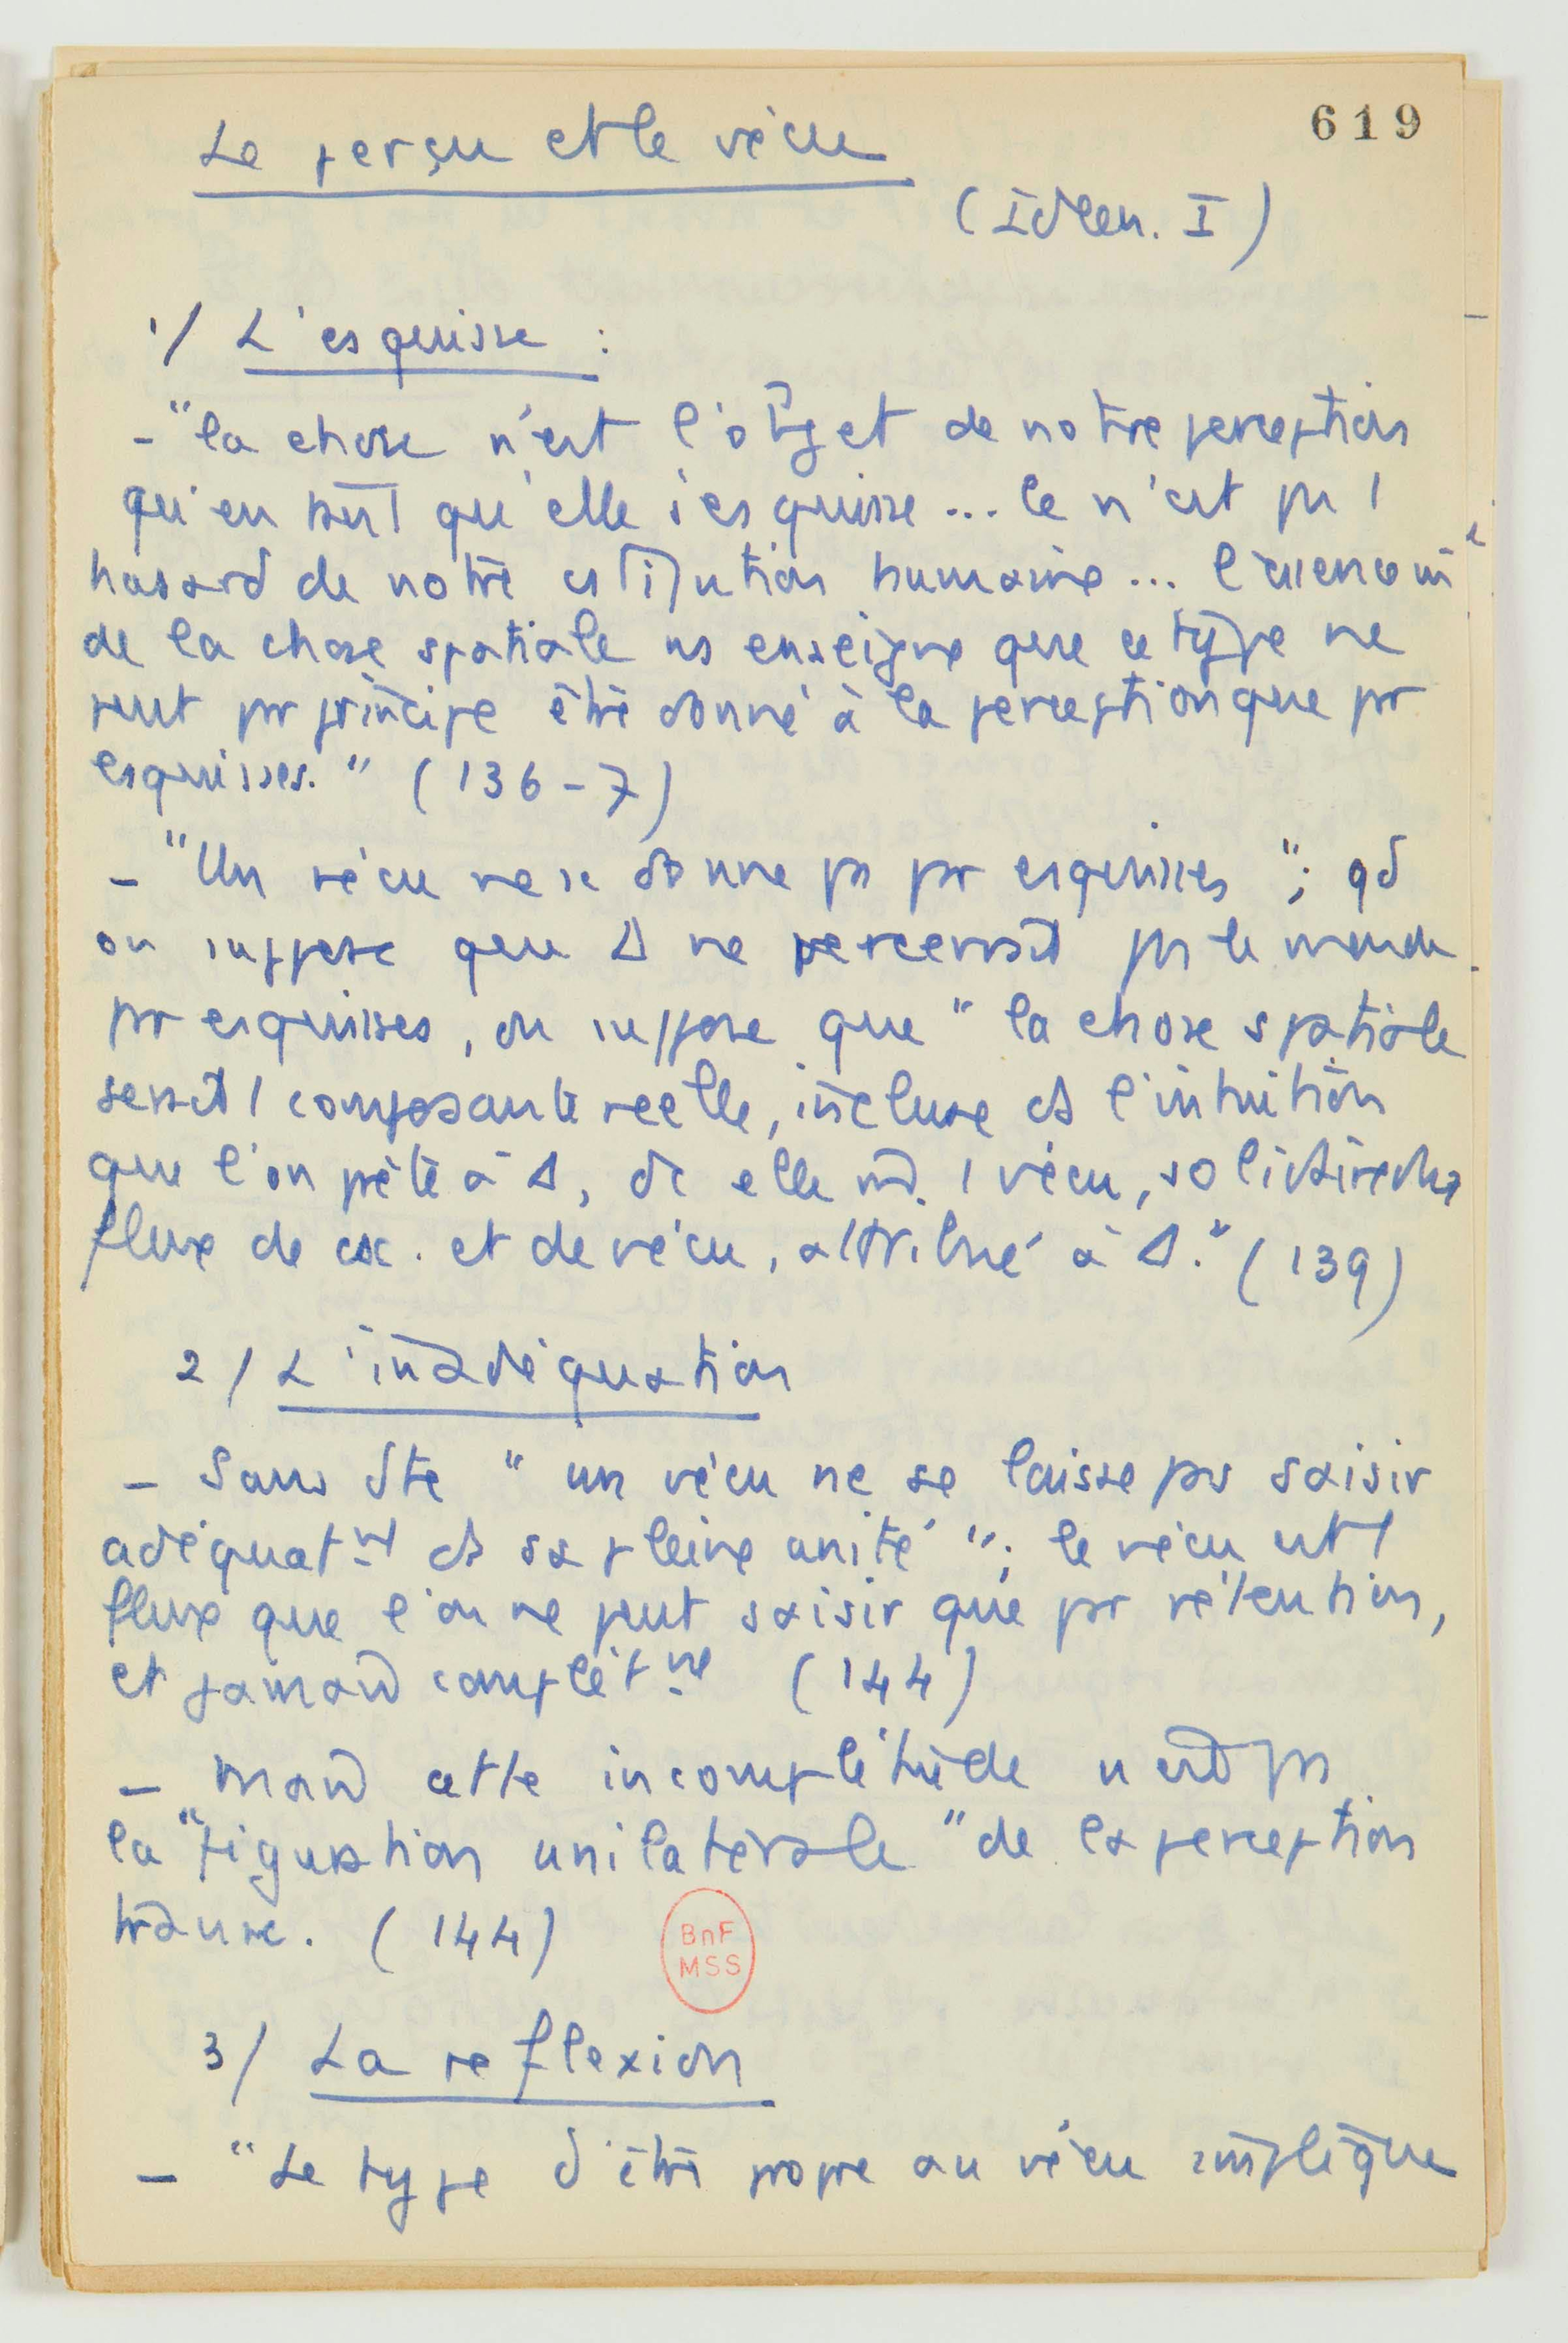 619
Le perçu et le vécu
(Ideen. I)
1/ L'esquisse :
- "la chose n'est l'objet de notre perception
qu'en tant qu'elle s'esquisse... Ce n'est pas 1
hasard de notre                humaine...
de la chose spatiale ns enseigne que ce type ne
peut pr principe être donné à la perception que pr
esquisses." (136-7)
- "Un vécu ne se donne ps pr esquisses"; qd
on suppose que Δ ne percevrait ps le monde
pr esquisses, on suppose que "la chose spatiale
serait 1 composante réelle, incluse ds l'intuition
que l'on prête à Δ, dc elle        1 vécu, solidaire du
flux de csc. et de vécu, attribué à Δ." (139)
2/ L'inadéquation
- Sans dte "un vécu ne se laisse pas saisir
adéquatnt ds sa pleine unité"; le vécu est 1
flux que l'on ne peut saisir que pr rétention,
et jamais complètnt (144)
- Mais cette incomplétude n'est ps
la "figuration unilatérale" de la perception
transc. (144)
BnF
MSS
3/ La reflexion
- "Le type d'être propre au vécu implique